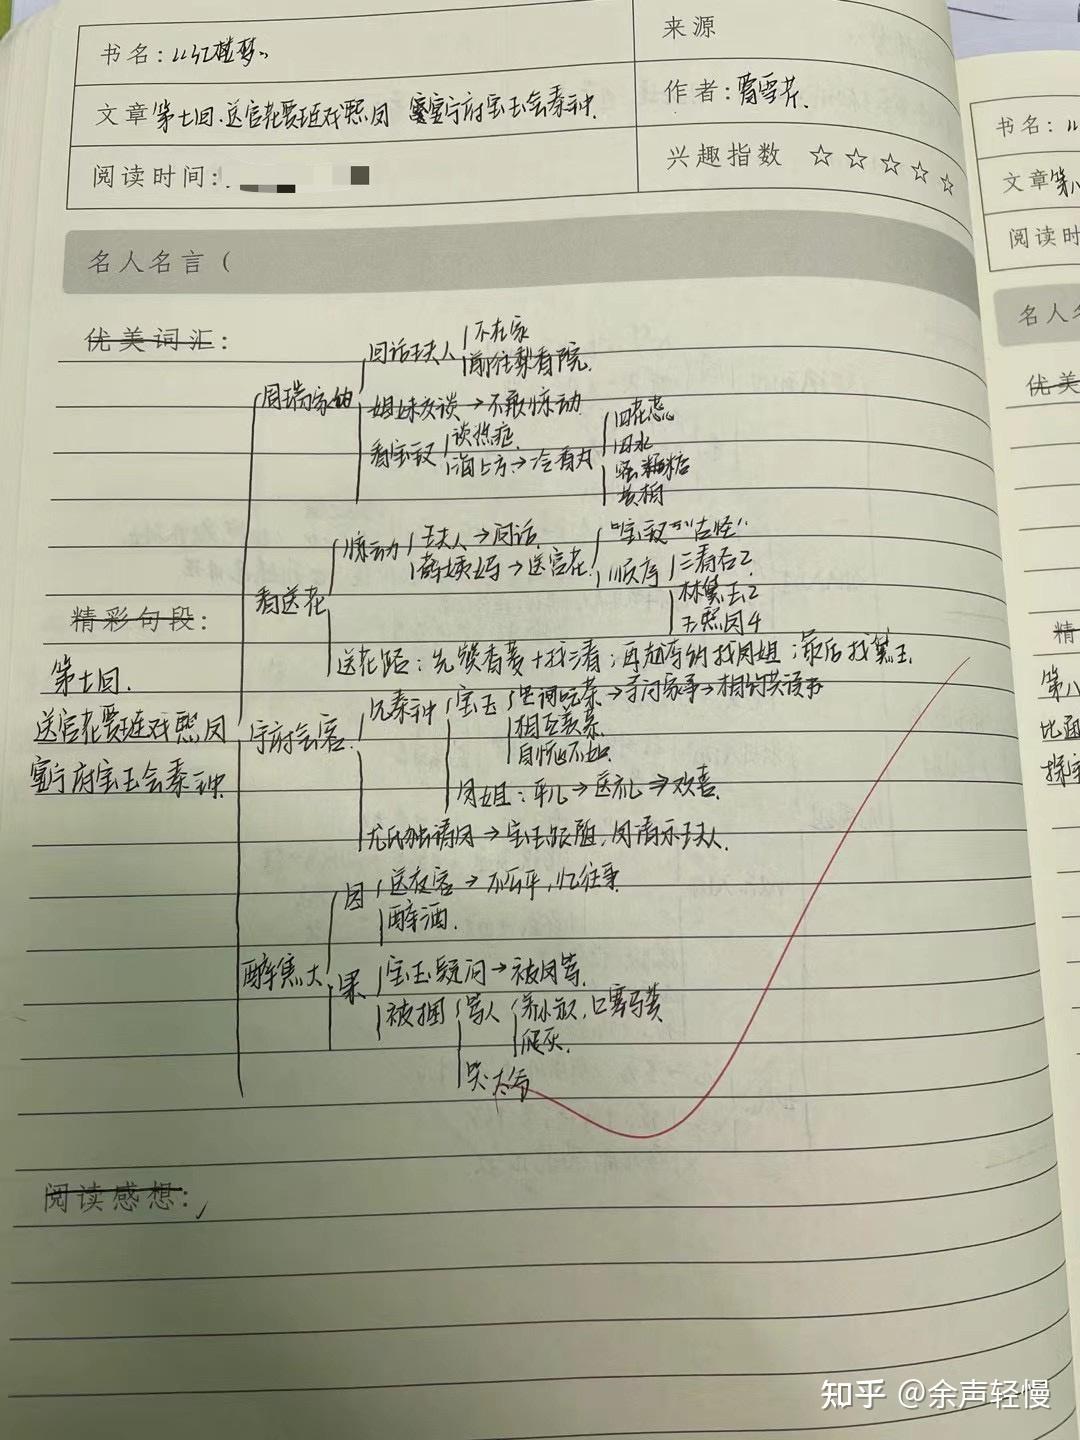 书名：《红楼梦》
来源
文章 第七回.送宫花贾琏戏熙凤 宴宁府宝玉会秦钟.
作者：曹雪芹.
阅读时间：
兴趣指数 ☆☆☆☆☆
名人名言（
优美词汇：
回话王夫人 不在家
前往梨香院.
周瑞家的
姐妹交谈→不敢惊动
看宝钗 谈热症
海上方→冷香丸
四花蕊
四水
黄柏
惊动 王夫人→问话.
薛姨妈→送宫花
"宝钗""古怪"
顺序 三春各2.
林黛玉2
王熙凤4
看送花
精彩句段：
送花路：先候香菱+找三春；再越李纨找凤姐；最后找黛玉.
第七回.
送宫花贾琏戏熙凤
宴宁府宝玉会秦钟.
宁府会客.
见秦钟 宝玉
→相约共读书
相互羡慕
自愧不如.
凤姐：平儿→送礼→欢喜.
尤氏独请凤→宝玉跟随,凤请示王夫人.
因 送夜客→不公平,忆往事
醉酒.
醉焦大
果 宝玉疑问→被凤骂.
被捆 骂人 养小叔,口塞马粪
爬灰.
阅读感想：
书名：
文章 第八
阅读时
名人名
优美
精
第八
比通
探宝
知乎 @余声轻慢